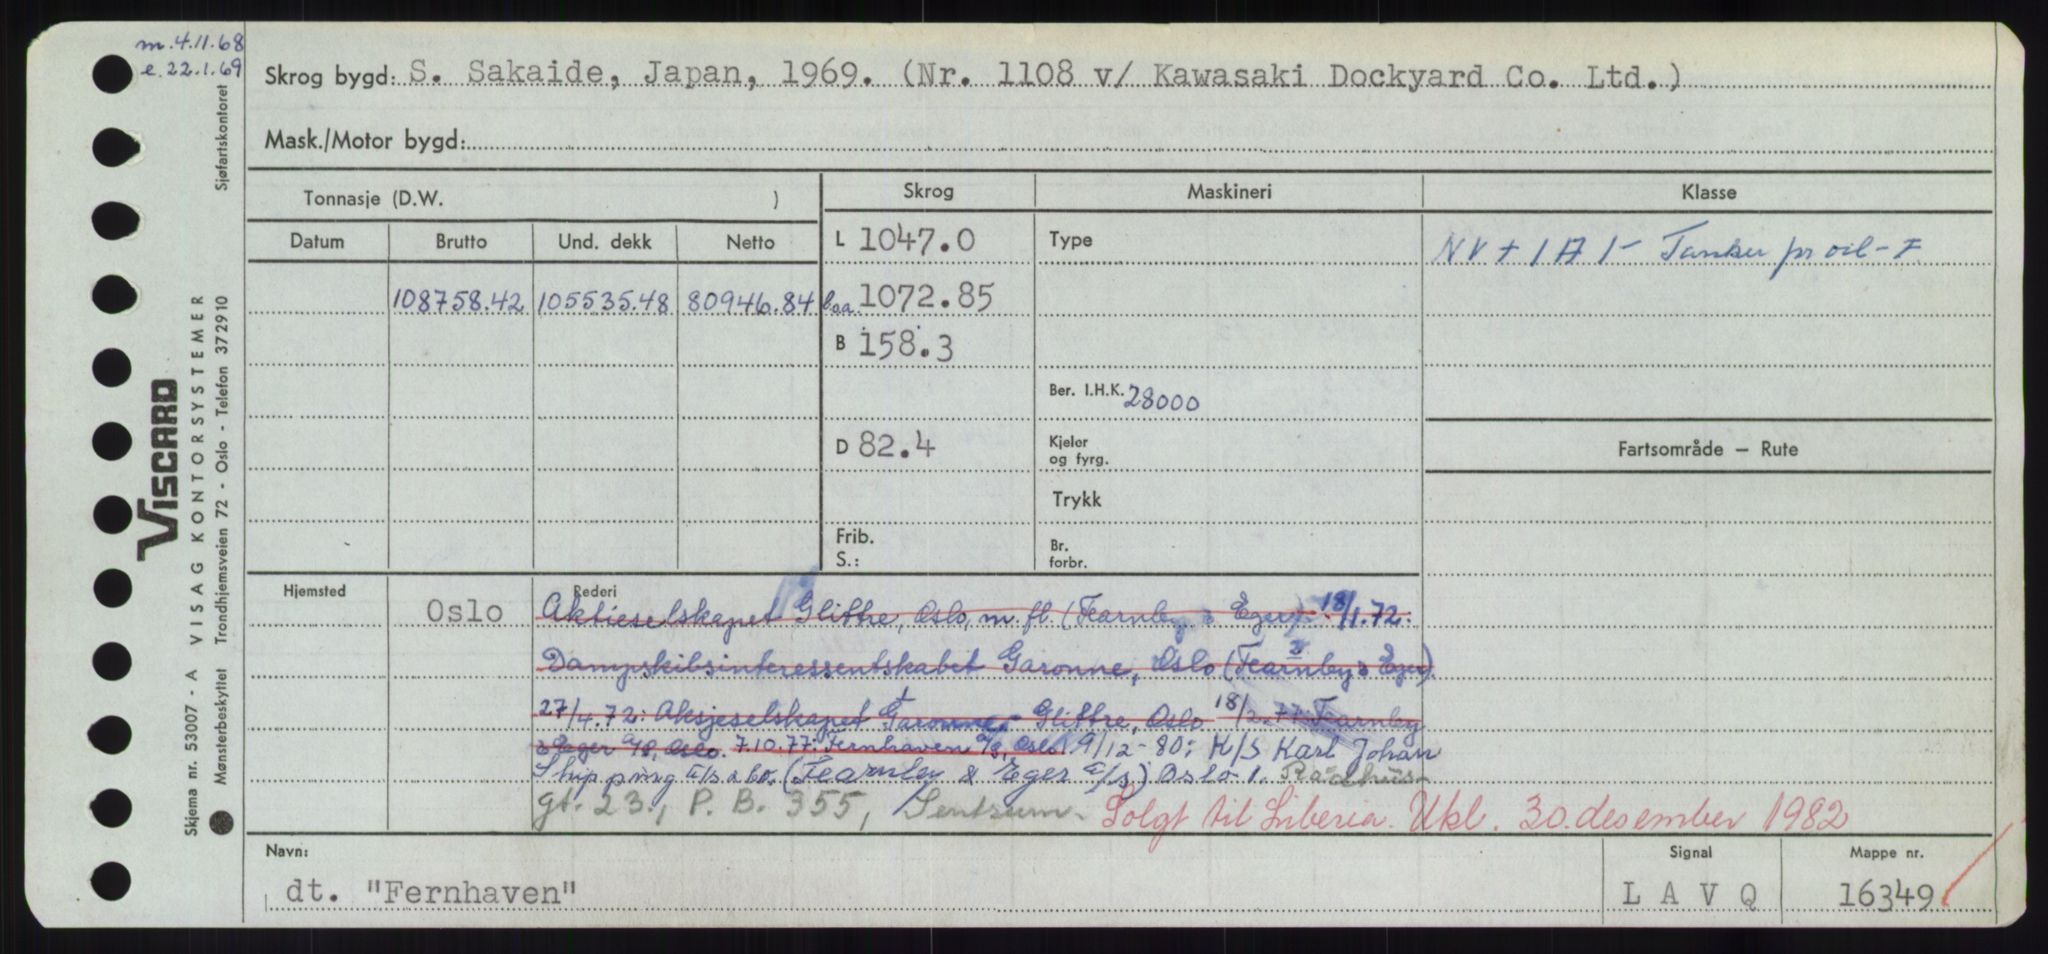 m. 4.11.68
e. 22.1.69
Skrog bygd: S. Sakaide, Japan, 1969. (Nr. 1108 v/ Kawasaki Dockyard Co. Ltd.)
Mask./Motor bygd:
Tonnasje (D.W. )
Skrog
Maskineri
Klasse
Datum
Brutto
Und. dekk
Netto
L 1047.0
Type
NV + 1 A 1 - Tanker for oil - F
108758.42
105535.48
80946.84
l.o.a. 1072.85
B 158.3
Ber. I.H.K. 28000
D 82.4
Kjeler
og fyrg.
Fartsområde — Rute
Trykk
Frib.
S.:
Br.
forbr.
Hjemsted
Rederi
Oslo
Aktieselskapet Glittre, Oslo, m. fl. (Fearnley & Eger) 18/1.72:
Dampskibsinteressentskabet Garonne, Oslo (Fearnley & Eger).
27/4.72: Aksjeselskapet Garonne - Glittre, Oslo 18/2.77: Fearnley
& Eger A/S, Oslo. 7.10.77: Fernhaven A/S, Oslo. 9/12-80: K/S Karl Johan
Shipping A/S & Co. (Fearnley & Eger A/S) Oslo 1. Rådhus-
gt. 23, P. B. 355, Sentrum. Solgt til Liberia. Utkl. 30. desember 1982
Navn:
dt. "Fernhaven"
Signal
L A V Q
Mappe nr.
16349
Sjøfartskontoret
VISCARD
VISAG KONTORSYSTEMER
Trondhjemsveien 72 - Oslo - Telefon 372910
Skjema nr. 53007 - A
Mønsterbeskyttet